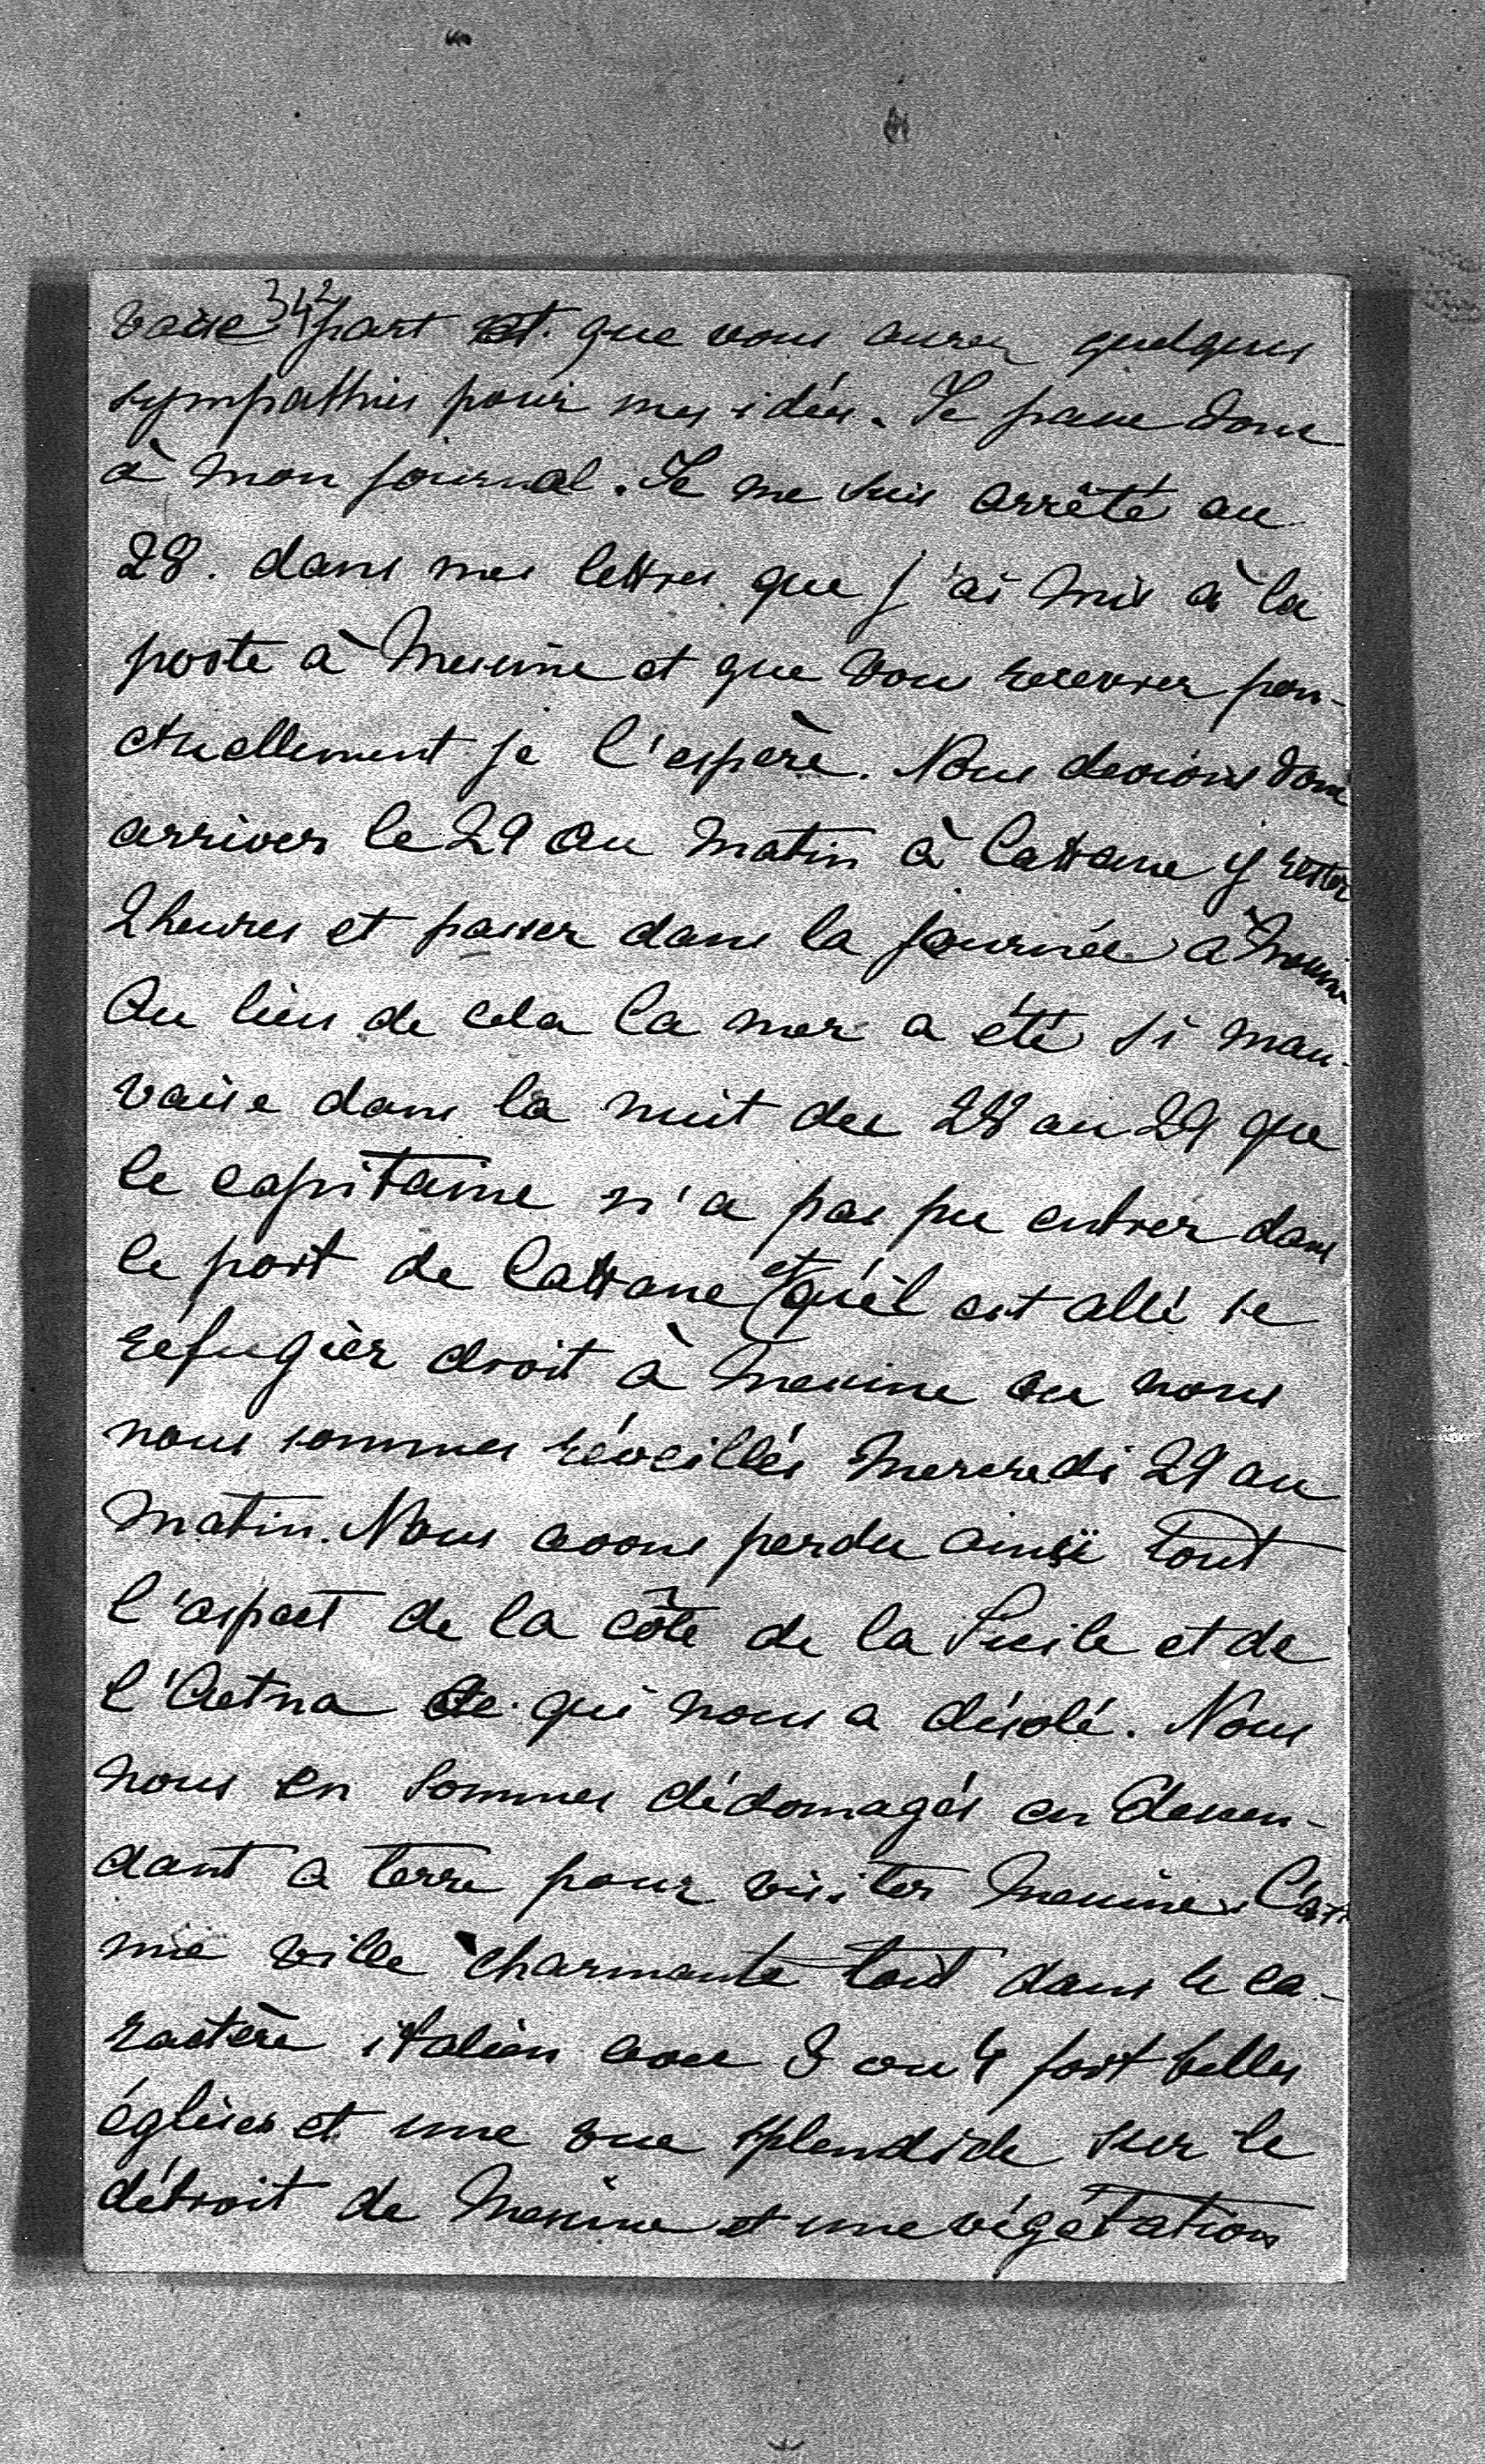 342
vaise part et que vous aurez quelques
sympathies pour mes idées. Je passe donc
à mon journal. Je me suis arrêté au
28. dans mes lettres que j'ai mis à la
poste à Messine et que vous recevrez pon-
ctuellement je l'espère. Nous devions donc
arriver le 29 au matin à Cattane y rester
2 heures et passer dans la journée à Messine
Au lieu de cela la mer a été si mau-
vaise dans la nuit du 28 au 29 que
le capitaine n'a pas pu entrer dans
le port de Cattane et qu'il est allé se
réfugier droit à Messine ou nous
nous sommes réveillés Mercredi 29 au
matin. Nous avons perdu ainsi tout
l'aspect de la côte de la Sicile et de
l'Aetna ce qui nous a désolé. Nous
nous en sommes dédomagés en descen-
dant a terre pour visiter Messine. C'est
une ville charmante tout dans le ca-
ractère italien avec 3 ou 4 fort belles
églises et une vue splendide sur le
détroit de Messine et une végétation